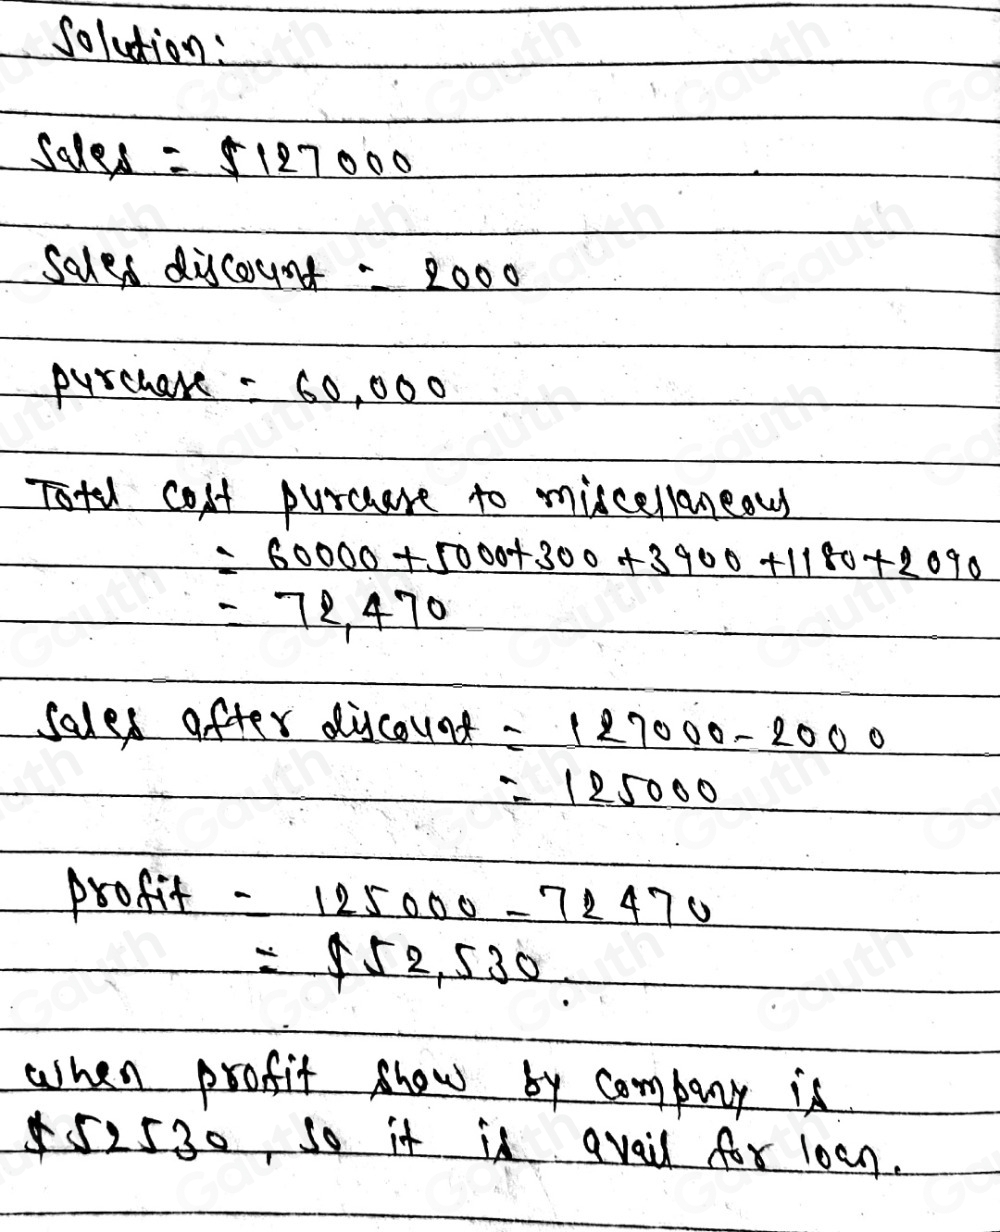 Solution:
Sales = $127000
Sales discount = 2000
purchase = 60,000
Total cost purchase to miscellaneous
= 60000 + 5000 + 300 + 3900 + 1180 + 2090
= 72,470
Sales after discount = 127000 - 2000
= 125000
profit = 125000 - 72470
= $52,530.
when profit show by company is
$52530, so it is avail for loan.